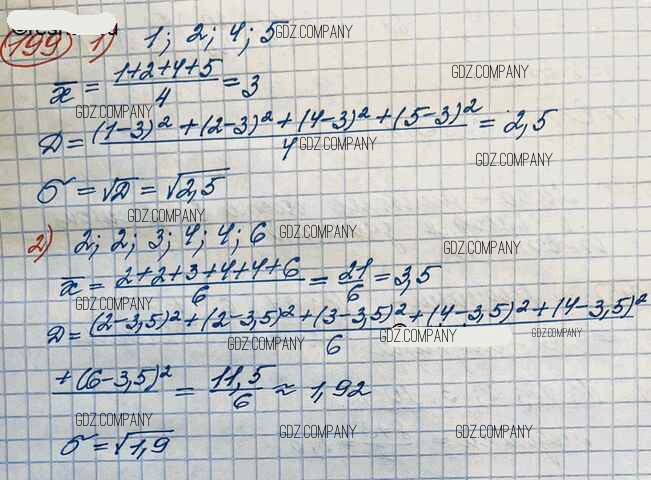 199 1) 1; 2; 4; 5 GDZ.COMPANY
x̄ = (1+2+4+5)/4 = 3 GDZ.COMPANY
GDZ.COMPANY
D = ((1-3)² + (2-3)² + (4-3)² + (5-3)²)/4 = 2,5
GDZ.COMPANY GDZ.COMPANY
σ = √D = √2,5
GDZ.COMPANY
2) 2; 2; 3; 4; 4; 6 GDZ.COMPANY
GDZ.COMPANY
x̄ = (2+2+3+4+4+6)/6 = 21/6 = 3,5
GDZ.COMPANY
D = ((2-3,5)² + (2-3,5)² + (3-3,5)² + (4-3,5)² + (4-3,5)²
GDZ.COMPANY GDZ.COMPANY GDZ.COMPANY
+ (6-3,5)²)/6 = 11,5/6 ≈ 1,92
GDZ.COMPANY GDZ.COMPANY GDZ.COMPANY
σ = √1,9